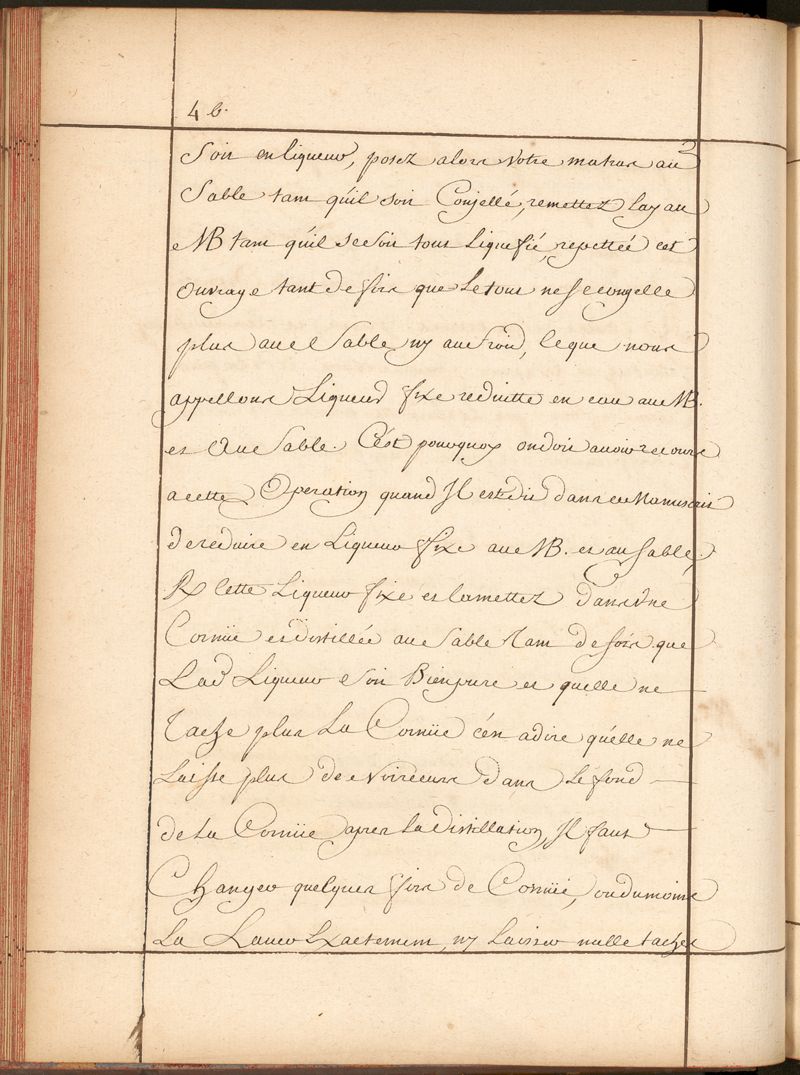 4 6.
Soit en liqueur, posez alors votre matras au
Sable tant qu'il soit Conjellé, remettez lay au
MB tant qu'il se soit tout Liquefié, repettéé cet
Ouvrage tant de fois que Le tout ne se congelle
plus au el Sable ny au froid, ce que nous
appellons Liqueur fixe reduitte en eau au MB.
et Au Sable. C'est pourquoy on doit avoir recours
a cette Operation quand Il est dit dans ce Manuscrit
de reduire en Liqueur fixe au MB. et au Sable,
℞ Cette Liqueur fixe et la mettez dans Une
Cornüe et distillée au Sable Tant de fois que
Lad Liqueur Soit Bien pure et quelle ne
Tache plus La Cornüe c'en a dire qu'élle ne
Laisse plus de Noirceurs dans Le fond
de La Cornüe apres la distillation, Il faut
Changer quelques fois de Cornüe, ou du moins
La Laver Exactement, ny Laisser nulle taches